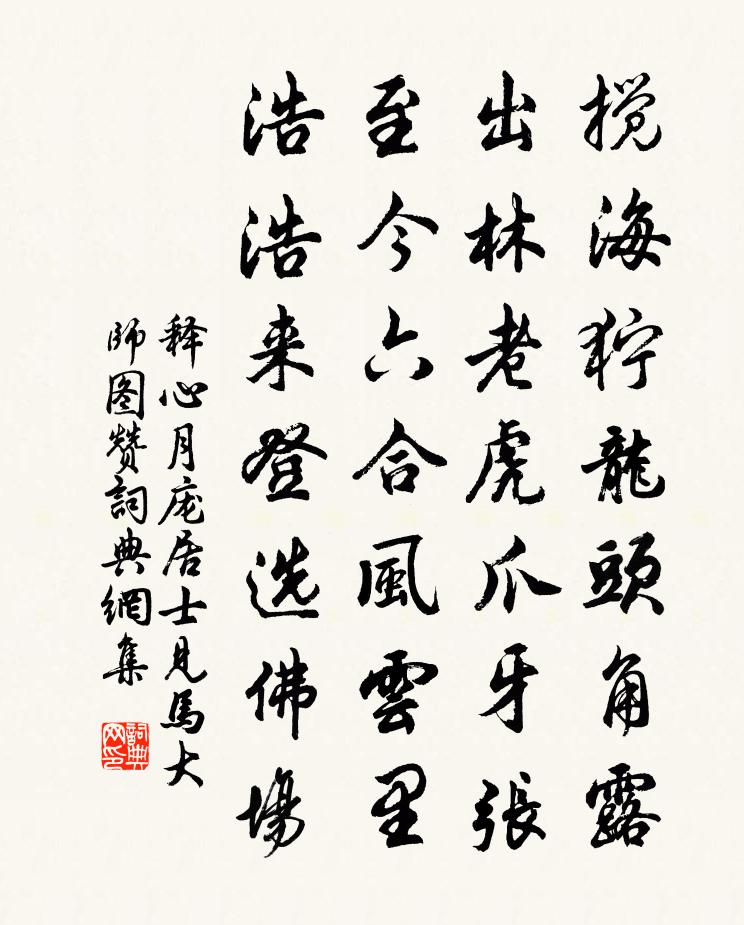 搅海狞龍頭角露
出林老虎爪牙張
至今六合風雲里
浩浩来登选佛場
释心月庞居士見馬大
師图赞詞典網集
詞典网印